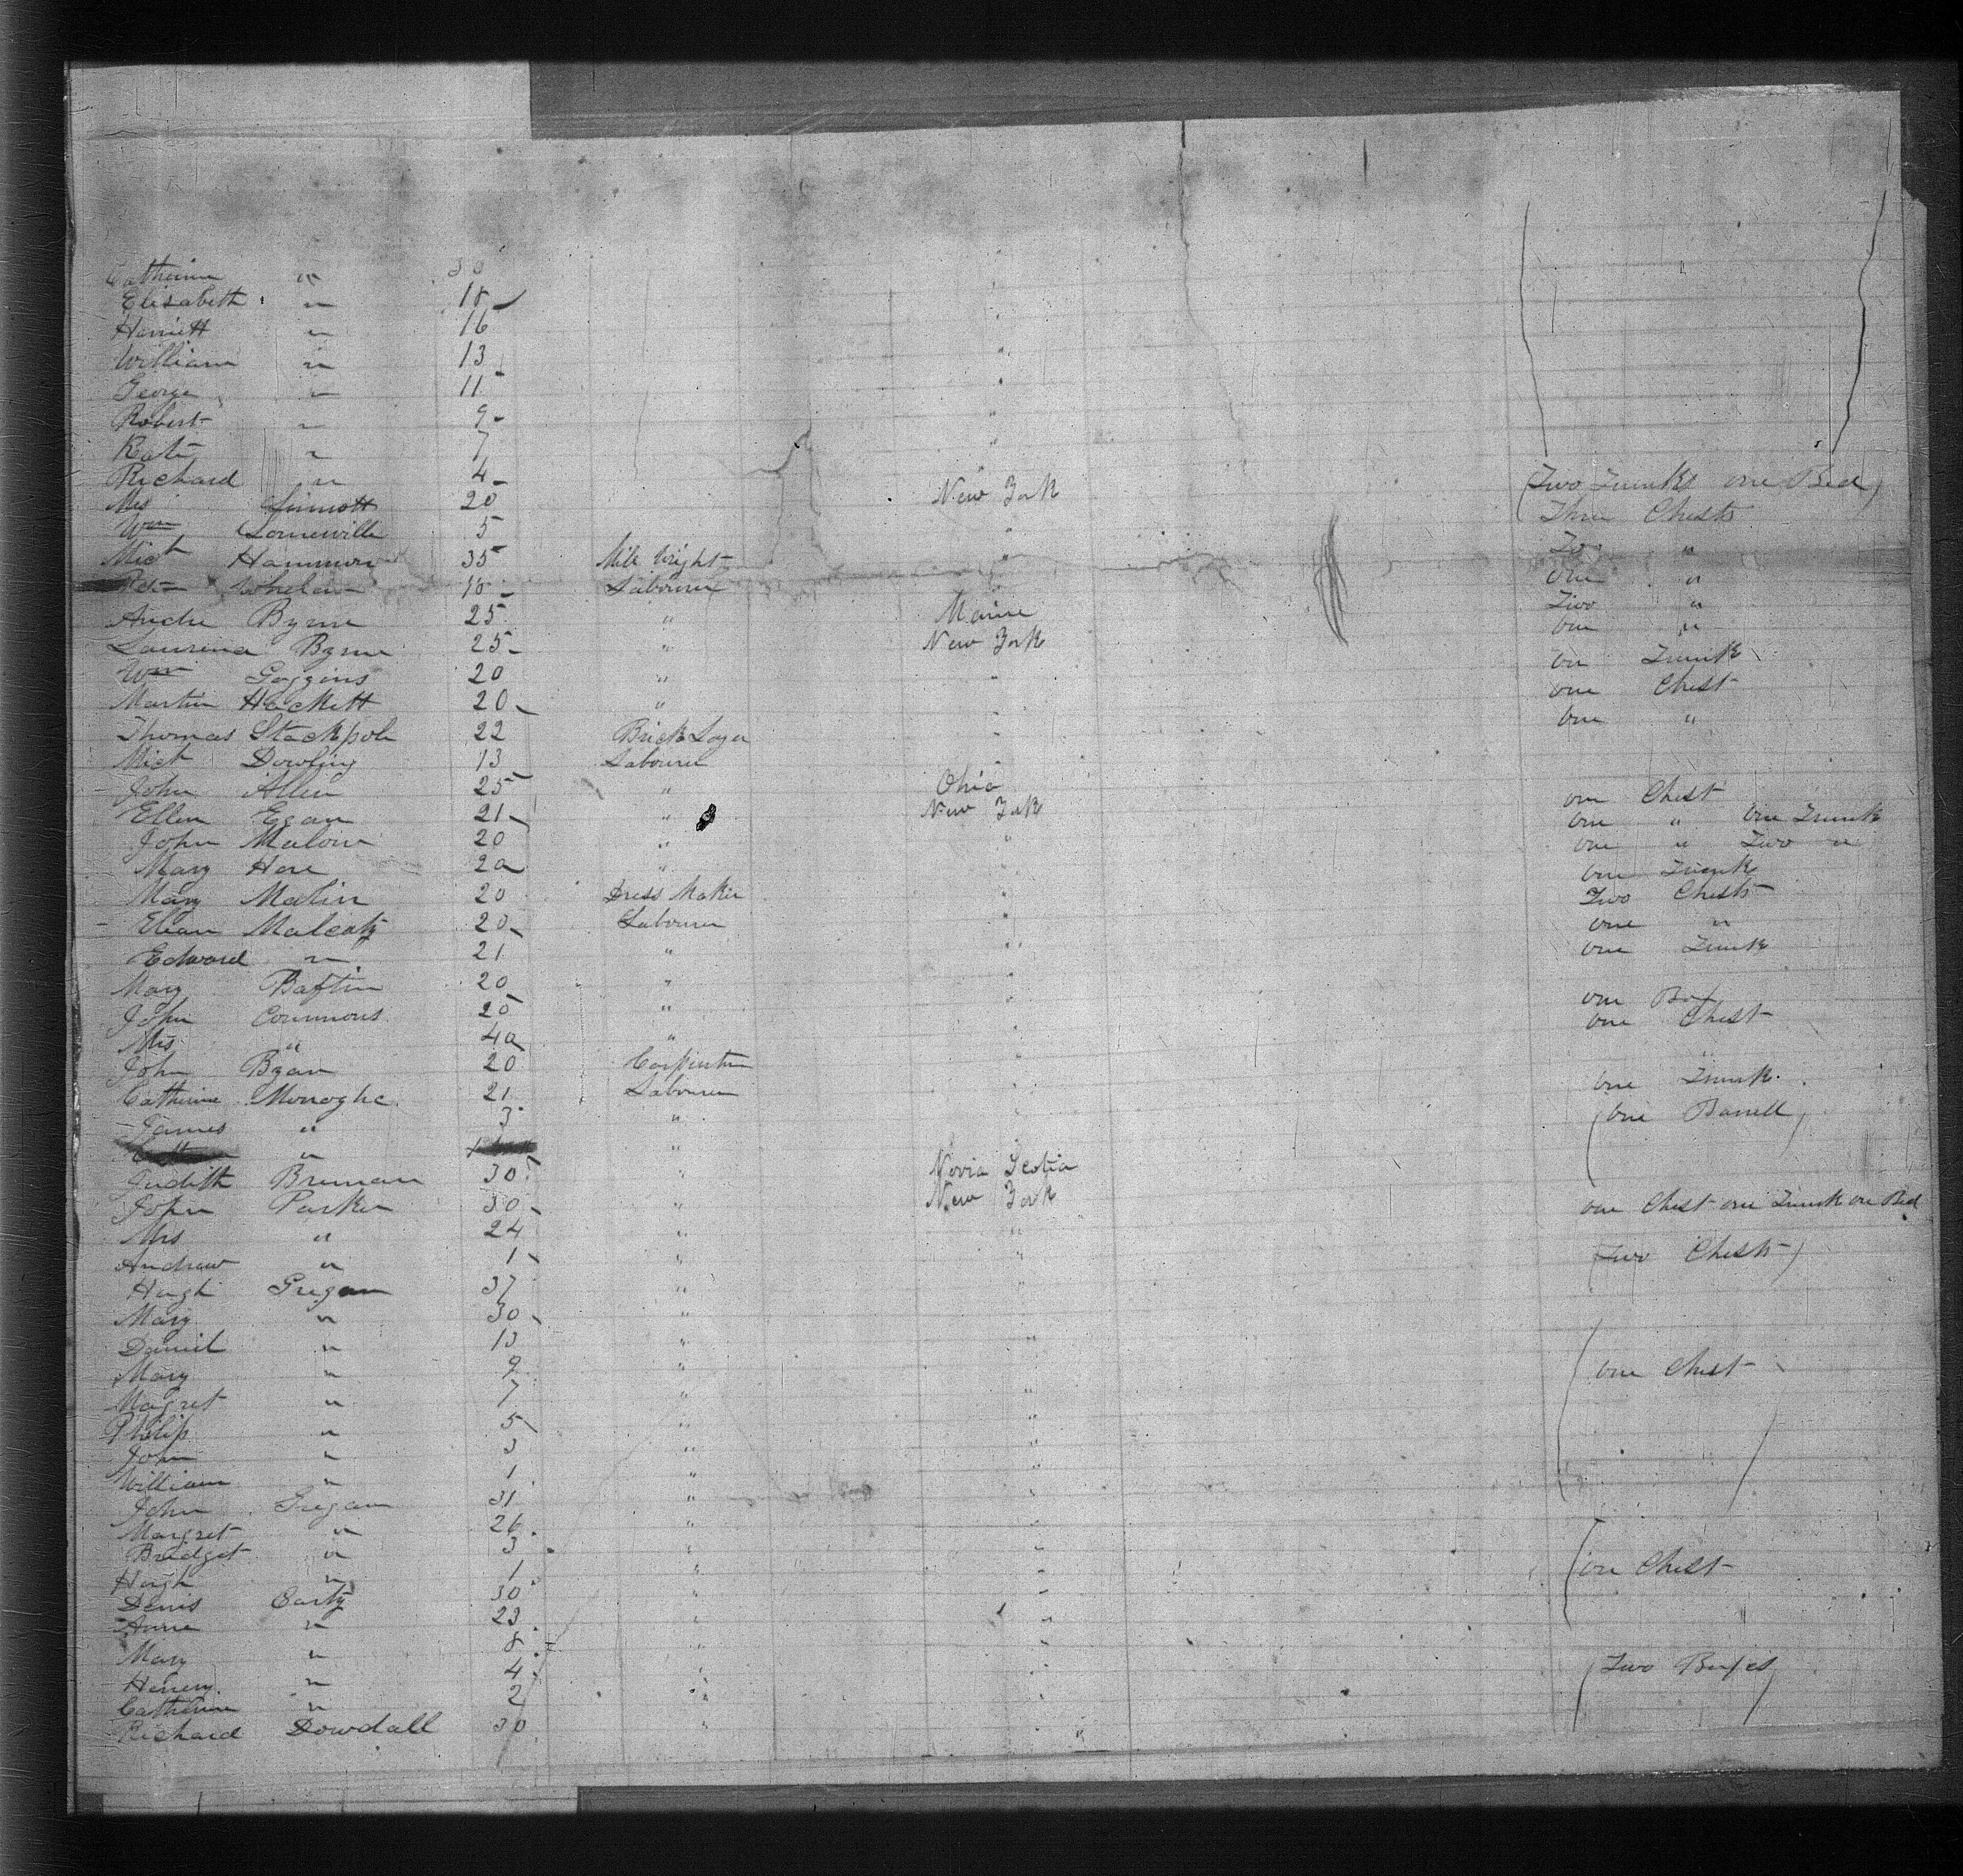 Catherine " 30
Elisabeth " 18
Harriett " 16
William " 13 "
George " 11 "
Robert " 9 "
Kate " 7 "
Richard " 4 " (Two Trunks one Bed)
Mrs Sinnott 20 New York Three Chests
Wm Somerville 5 "
Micl Hammon 35 Mill Wright " "
Whelan 18 Labourer " one "
Andw Byrne 25 " Maine Two "
Laurence Byrne 25 " New York one "
Wm Goggins 20 " " one Trunk
Martin Hackett 20 " " one Chest
Thomas Stackpole 22 Brick Layer " one "
Micl Dowling 13 Labourer "
John Allen 25 " Ohio one Chest
Ellen Egan 21 " New York one " one Trunk
John Malone 20 " " one " Two "
Mary Hore 20 " " one Trunk
Mary Matin 20 Dress Maker " Two Chests
Elean Malcaty 20 Labourer " one "
Edward " 21 " " one Trunk
Mary Baftin 20 "
John Commons 25 " " one Box
Mrs " 40 " one Chest
John Byan 20 Carpenter "
Catherine Monoghe 21 Labourer " one Trunk
James " 3 " " (one Barrell)
" "
Judith Brenan 30 " Novia Scotia
John Parker 30 " New York one Chest one Trunk one Bed
Mrs " 24 " "
Andrew " 1 " " (Two Chests)
Hugh Gregan 37 " "
Mary " 30 "
Daniel " 13 " "
Mary " 9 " (one Chest
Magret " 7 " "
Philip " 5 " "
John " 3 " "
William " 1 " "
John Gregan 31 " "
Margret " 26 "
Bridget " 3 " "
Hugh " 1 " " (one Chest
Denis Carty 30 " "
Anne " 23 " "
Mary " 8 " "
Henery " 4 " " (Two Boxes)
Catherine " 2 " "
Richard Dowdall 30 " "